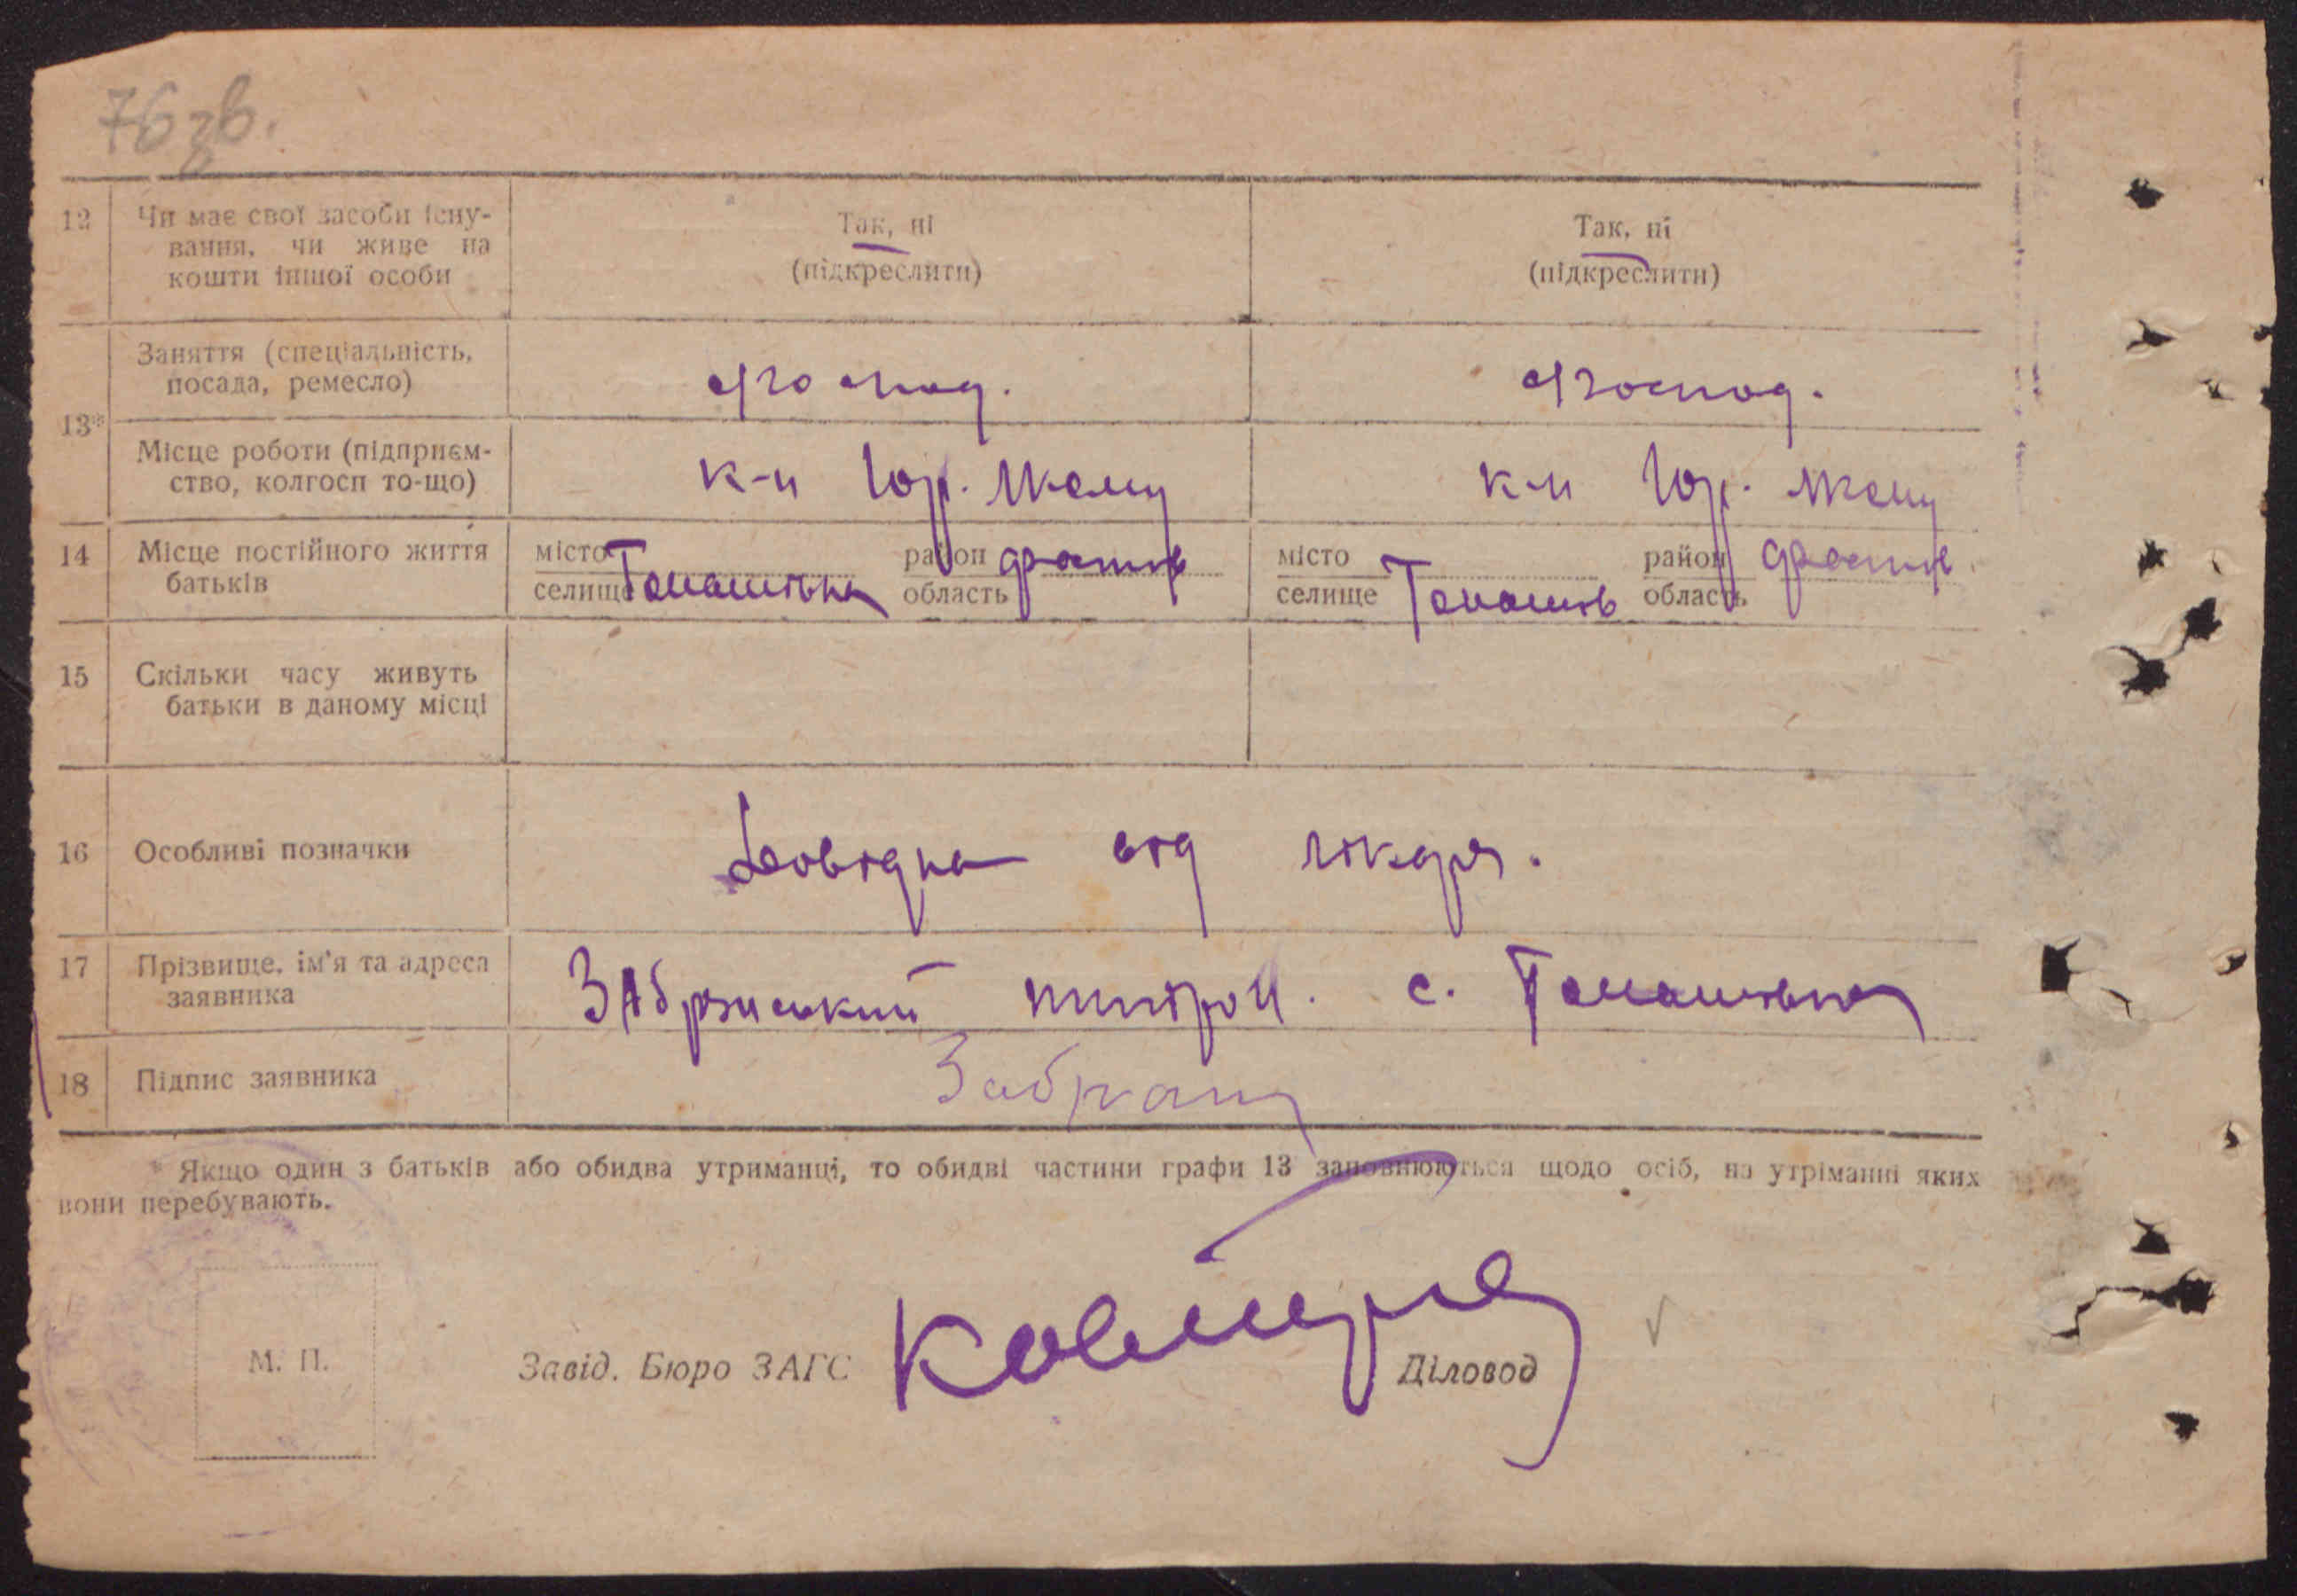 76 зв.
12 Чи має свої засоби існу-
вання, чи живе на
кошти іншої особи
Так, ні
(підкреслити)
Так, ні
(підкреслити)
13*
Заняття (спеціальність,
посада, ремесло)
Місце роботи (підприєм-
ство, колгосп то-що)
к-п
к-п
14 Місце постійного життя
батьків
місто
селище Томашівка
район
область
місто
селище Томашів
район
область
15 Скільки часу живуть
батьки в даному місці
16 Особливі позначки
Довідка від лікаря.
17 Прізвище, ім'я та адреса
заявника
с. Томашівка
18 Підпис заявника
* Якщо один з батьків або обидва утриманці, то обидві частини графи 13 заповнюються щодо осіб, на утріманні яких
вони перебувають.
М. П.
Завід. Бюро ЗАГС
Діловод